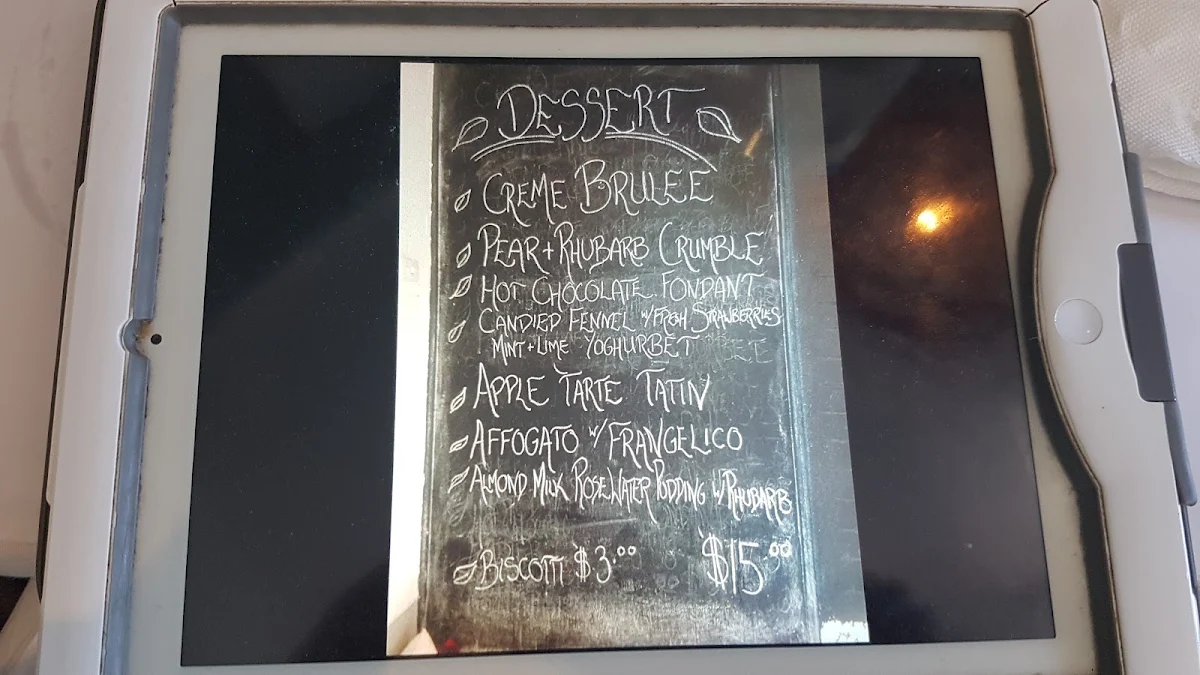 DESSERT
CREME BRULEE
PEAR + RHUBARB CRUMBLE
HOT CHOCOLATE FONDANT
CANDIED FENNEL W/ FRESH STRAWBERRIES
MINT + LIME YOGHURBET
APPLE TARTE TATIN
AFFOGATO W/ FRANGELICO
ALMOND MILK ROSEWATER PUDDING W/ RHUBARB
BISCOTTI $3.00 $15.00